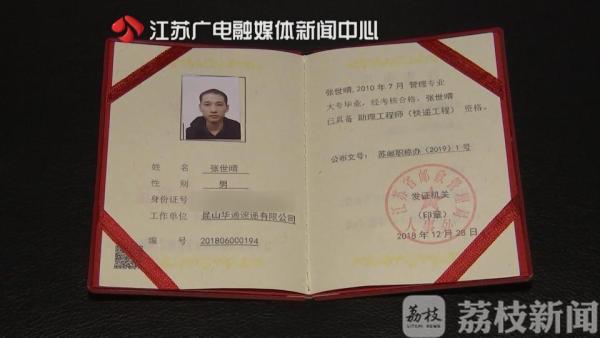 江苏广电融媒体新闻中心
姓 名 张世晴
性 别 男
身份证号
工作单位 昆山华通速递有限公司
编 号 201806000194
张世晴, 2010 年 7 月 管理专业
大专毕业, 经考核合格, 张世晴
已具备 助理工程师（快递工程） 资格。
公布文号: 苏邮职称办（2019）1 号
江苏省邮政管理局
发证机关
（印章）
2018 年 12 月 28 日
荔枝
LITCHI NEWS
荔枝新闻